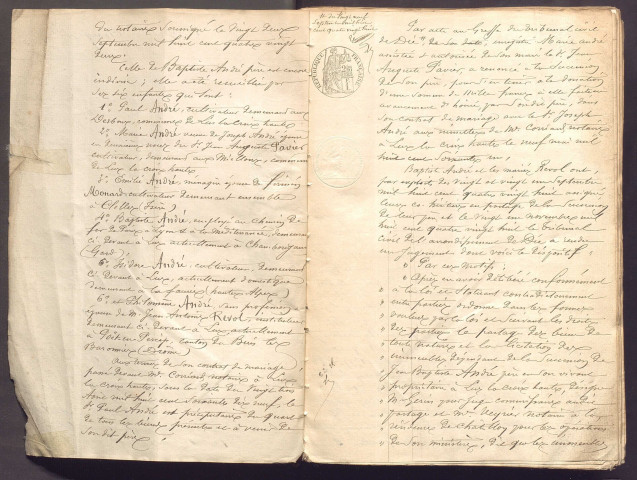 du notaire soussigné le vingt deux
septembre mil huit cent quatre vingt
deux.
Celle de Baptiste André père est encore
indivise; elle a été recueillie par
ses six enfants qui sont:
1° Paul André, cultivateur demeurant aux
commune de Lus la croix haute
2° Marie André veuve de Joseph André épouse
en deuxièmes noces du Sr Jean Auguste Pavier
cultivateur, demeurant aux commune
de Lus la croix haute
3° Emilie André, ménagère épouse de Firmin
Monard cultivateur demeurant ensemble
à Clelles Isère)
4° Baptiste André employé au Chemin de
fer de Paris à Lyon et à la Méditerranée, demeurant
ci devant à Lus actuellement à
(Gard)
5° Isidore André, cultivateur, demeurant
ci devant à Lus, actuellement domestique
demeurant à la Faurie (hautes Alpes)
6° et Philomène André, sans profession,
épouse de M. Jean Antoine Revol, instituteur
demeurant ci devant à Lus, actuellement
à canton de Buis les
Baronnies (Drome)
Aux termes de son contrat de mariage,
passé devant Me notaire à Lus
la croix haute, sous la date du vingt
mil huit cent soixante dix neuf, le
Sr Paul André est préciputaire du quart
de tous les biens présents et à venir de
son dit père
REPUBLIQUE FRANÇAISE
Par acte au Greffe du tribunal civil
de Die, en date, enregistré, Marie André
assistée et autorisée de son mari le Sr Jean
Auguste Pavier, a renoncé à la succession
de son père, pour s'en tenir à la donation
d'une somme de mille francs à elle faite en
avancement d'hoirie par son dit père, dans
son contrat de mariage avec le Sr Joseph
André aux minutes de Me notaire
à Lus la croix haute le neuf mai mil
huit cent soixante un,
Baptiste André et les mariés Revol ont,
par exploits du vingt et vingt un septembre
mil huit cent quatre vingt huit assigné
leurs co-héritiers en partage de la succession
de leur père et le vingt un novembre mil
huit cent quatre vingt huit le tribunal
civil de l'arrondissement de Die, a rendu
un jugement dont voici le dispositif;
Par ces motifs:
« Après en avoir délibéré conformément
« à la loi et statuant contradictoirement
« entre parties ordonne dans les formes
« voulues par la loi et suivant les droits
« des parties le partage des biens de
« toute nature et la licitation des
« immeubles dépendant de la succession de
« Jean Baptiste André père en son vivant
« propriétaire à Lus la croix haute, désigne
« Mr juge commissaire audit
« partage et Me notaire à la
« résidence de Chatillon pour les opérations
« de son ministère, dit que les immeubles